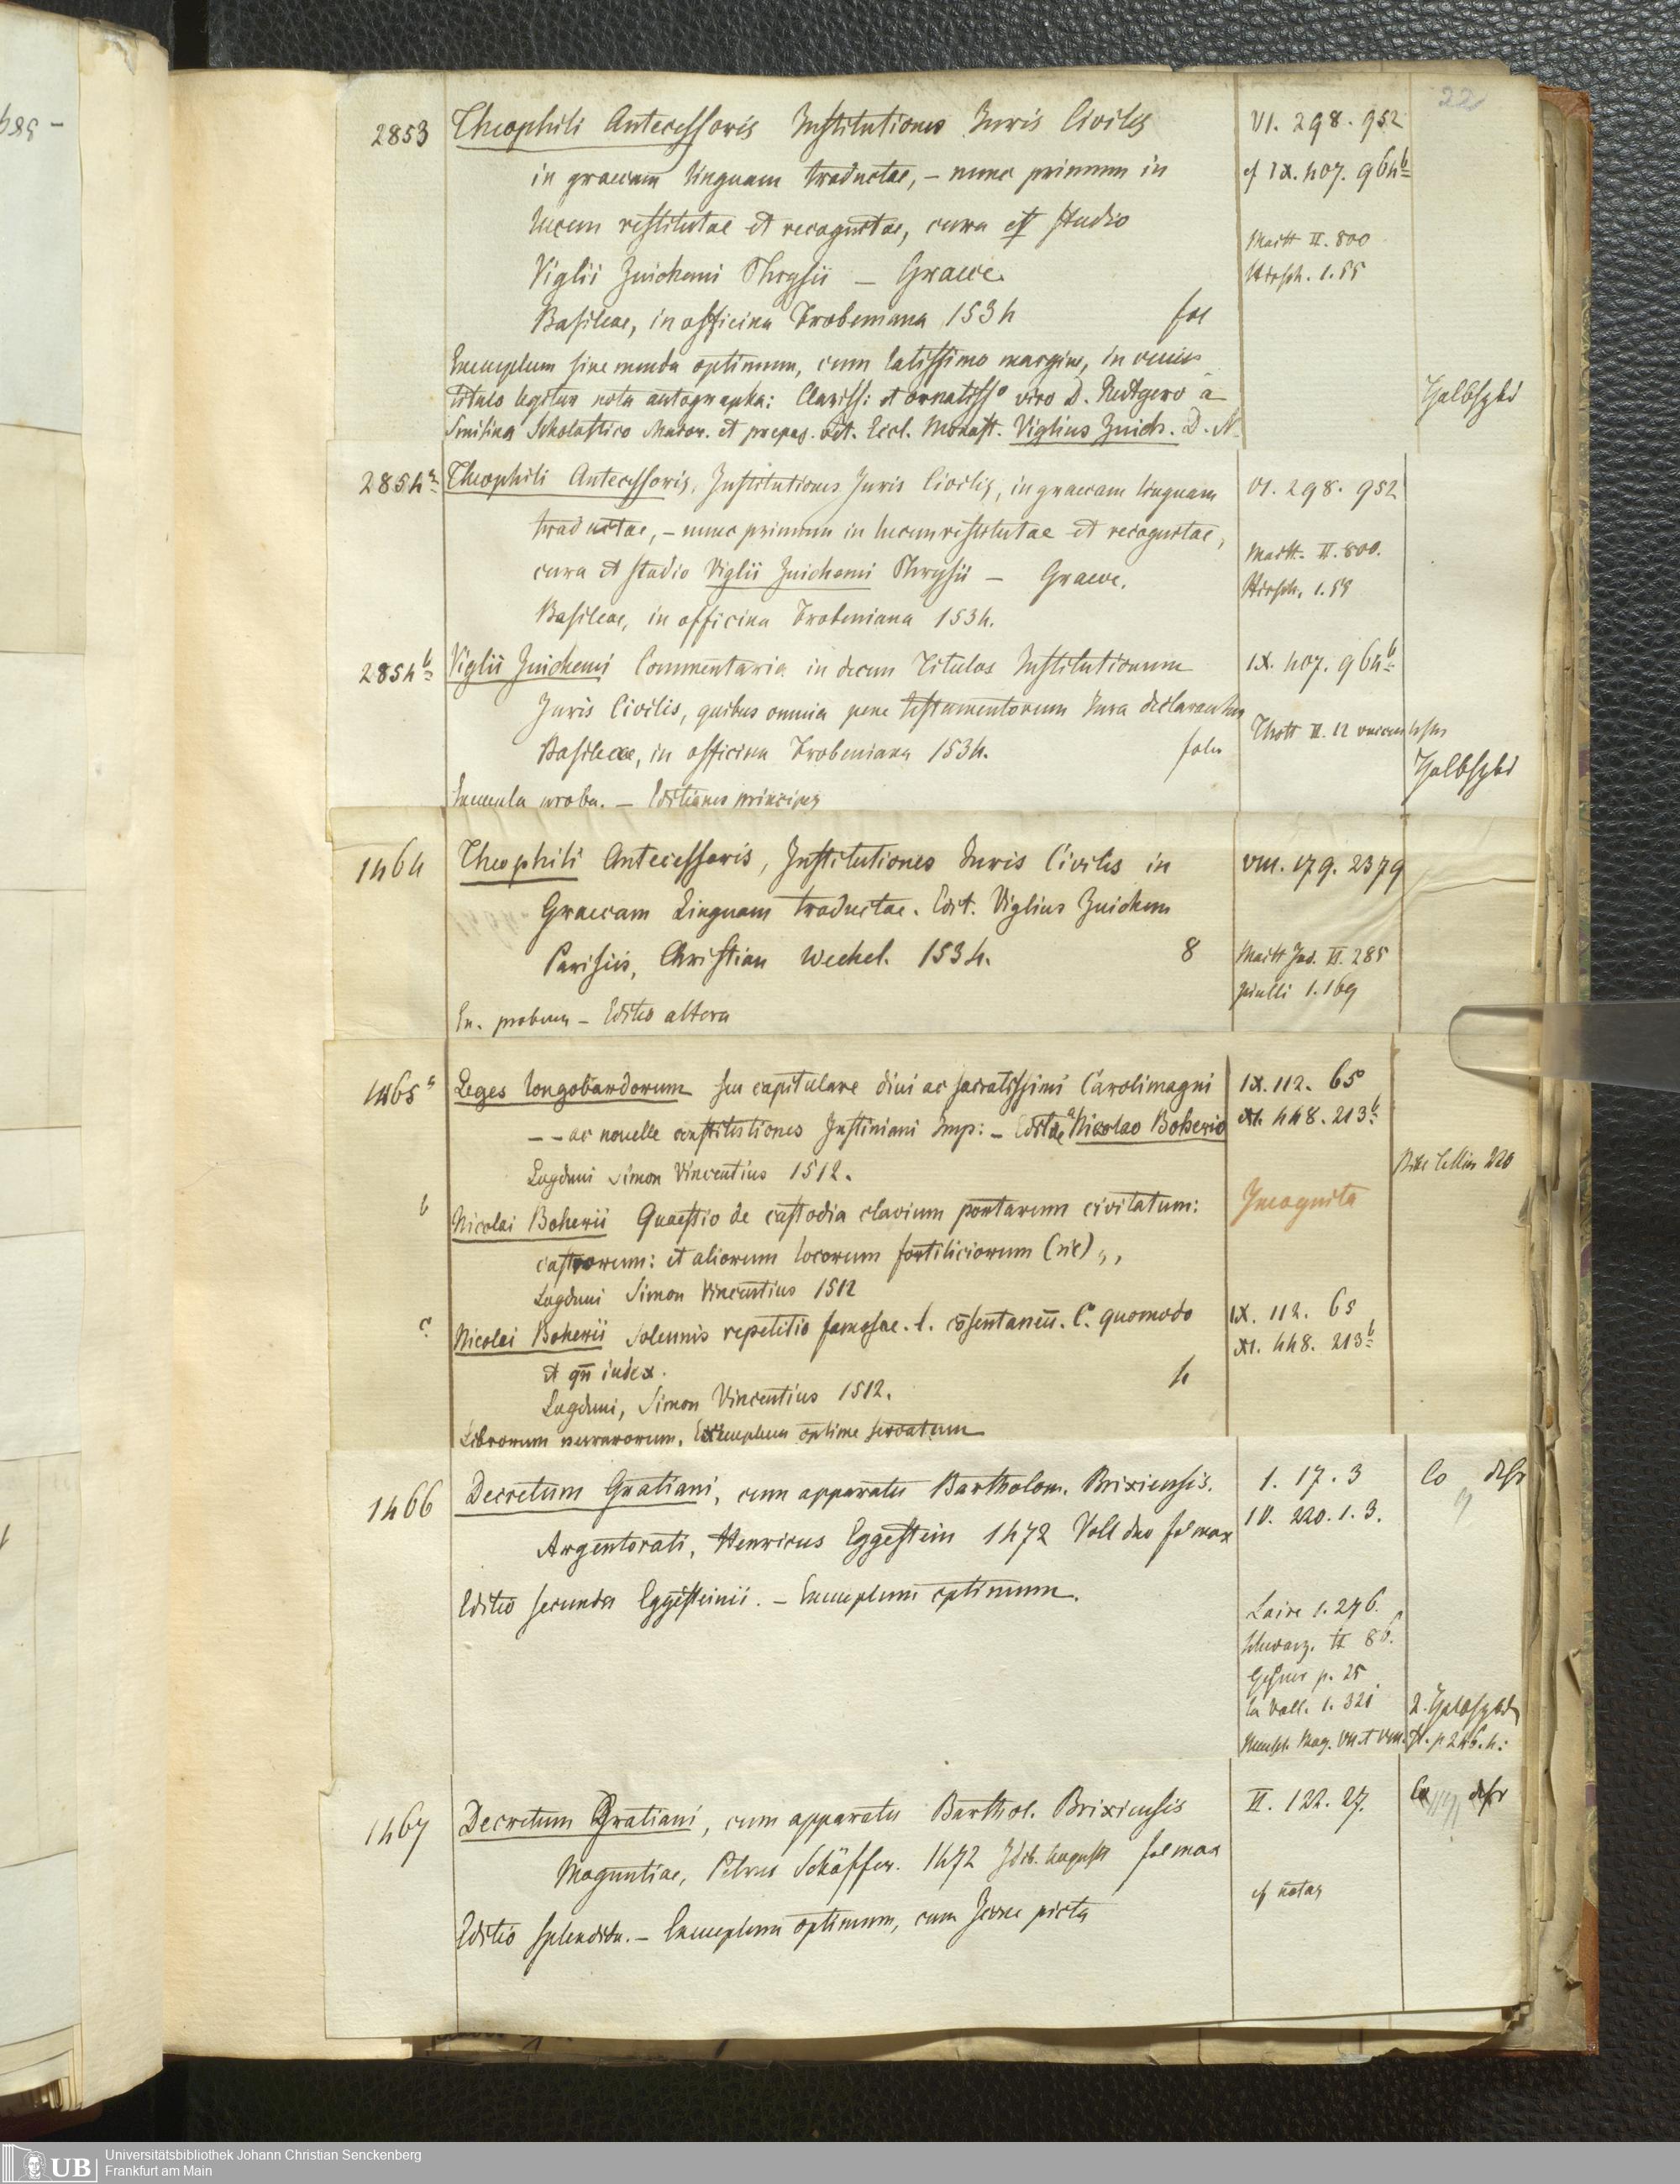 22
2853 Theophili Antecessoris Institutiones Juris Civilis VI. 298. 952
in graecam linguam traductae, – nunc primum in cf IX. 407. 964b
lucem restitutae et recognitae, cura et studio Maitt II. 800
Viglii Zuichemi Phrysii – Graece. Hirsch. 1.55
Basileae, in officina Frobeniana 1534 fol
Exemplum sine menda optimum, cum latissimo margine, in cuius
titulo legitur nota autographa: Clariss: et ornatisso viro D. Rutgero a
Scholastico et Eccl. Monast. Viglius Zuich. D. Halbfzbd
2854a Theophili Antecessoris, Institutiones Juris Civilis, in graecam linguam VI. 298. 952
traductae, – nunc primum in lucem restitutae et recognitae, Maitt. II. 800.
cura et studio Viglii Zuichemi Phrysii – Graece. Hirsch. 1.55
Basileae, in officina Frobeniana 1534.
2854b Viglii Zuichemi Commentaria in decem Titulos Institutionum IX. 407. 964b
Juris Civilis, quibus omnia pene testamentorum Jura declarantur Thott II. 12
Basileae, in officina Frobeniana 1534. folio Halbfzbd
Exempla proba. – Editiones principes
1464 Theophili Antecessoris, Institutiones Juris Civilis in VIII. 179. 2379
Graecam Linguam traductae. Edit. Viglius Zuichem
Parisiis, Christian Wechel. 1534. 8 Maitt Ind. II. 285
Ex. probum – Editio altera Pinelli 1.169
1465a Leges longobardorum seu capitulare divi ac sacratissimi Carolimagni IX. 112. 65
– – ac novelle constitutiones Justiniani Imp: – Editae a Nicolao Boherio XI. 448. 213b
Lugduni Simon Vincentius 1512. 220
b Nicolai Boherii Quaestio de custodia clavium portarum civitatum: Incognita
castrorum: et aliorum locorum fortiliciorum (sic) „,
Lugduni Simon Vincentius 1512
c Nicolai Boherii Solennis repetitio famosae. l. cōsentaneū. C. quomodo IX. 112. 65
et qn̄ iudex. 4 XI. 448. 213b
Lugduni, Simon Vincentius 1512.
Librorum rariorum. Exemplum optime servatum
1466 Decretum Gratiani, cum apparatu Bartholom. Brixiensis. 1. 17. 3 Co
Argentorati, Henricus Eggestein 1472 Voll duo fol max IV. 220. 1. 3.
Editio secunda Eggesteinii. – Exemplum optimum. Laire 1. 276.
Schwarz. II 86.
Gesner p. 25
la Vall. 1. 321 2. Halbfzbd
1467 Decretum Gratiani, cum apparatu Barthol. Brixiensis II. 122. 27. Co
Moguntiae, Petrus Schäffer. 1472 Idib. August fol max
cf notas
Editio splendida. – Exemplum optimum, cum picta
UB Universitätsbibliothek Johann Christian Senckenberg
Frankfurt am Main